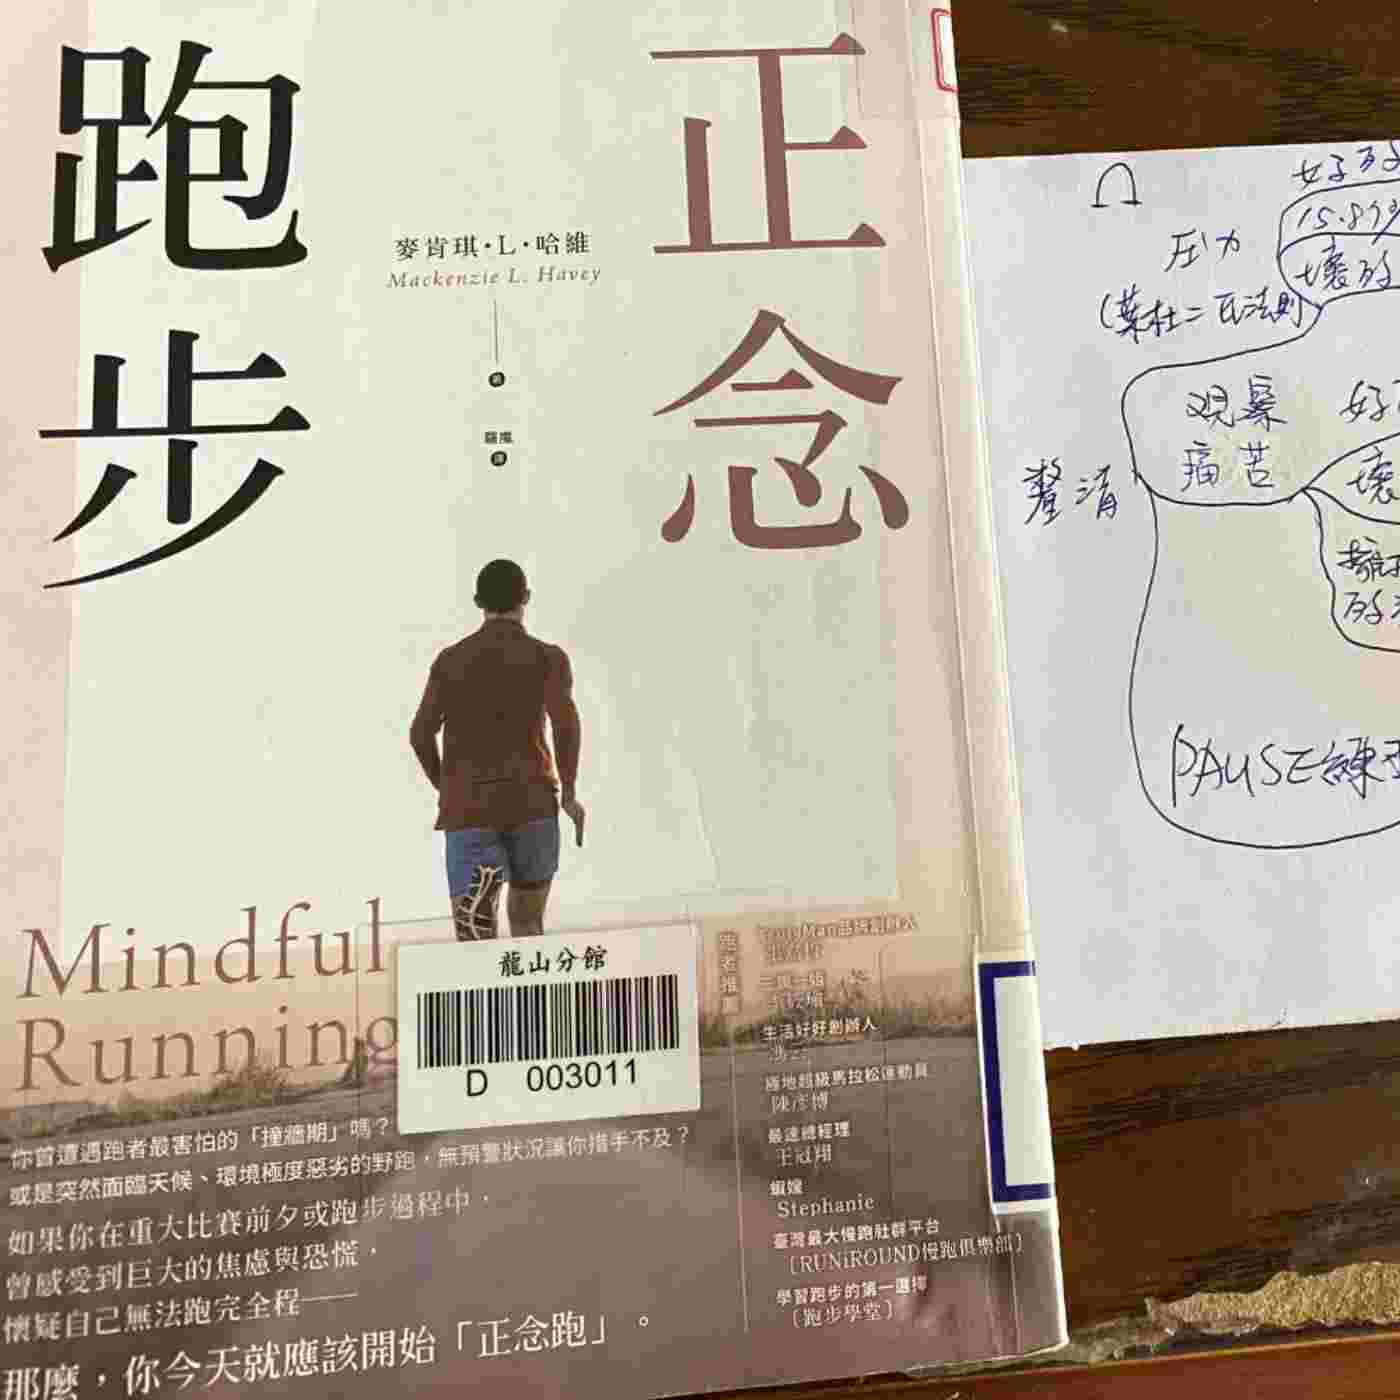 正念
跑步
麥肯琪・L・哈維
Mackenzie L. Havey
著
羅嵐
譯
Mindful
Running
龍山分館
D 003011
你曾遭遇跑者最害怕的「撞牆期」嗎？
或是突然面臨天候、環境極度惡劣的野跑，無預警狀況讓你措手不及？
如果你在重大比賽前夕或跑步過程中，
曾感受到巨大的焦慮與恐慌，
懷疑自己無法跑完全程——
那麼，你今天就應該開始「正念跑」。
跑者推薦
生活好好創辦人
極地超級馬拉松運動員
陳彥博
最速總經理
王冠翔
蝦嫂
Stephanie
臺灣最大慢跑社群平台
〔RUNiROUND慢跑俱樂部〕
學習跑步的第一選擇
〔跑步學堂〕
壓力
(葉杜二氏法則
15.8
壞
观察
痛苦
好
壞
釐清
PAUSE練